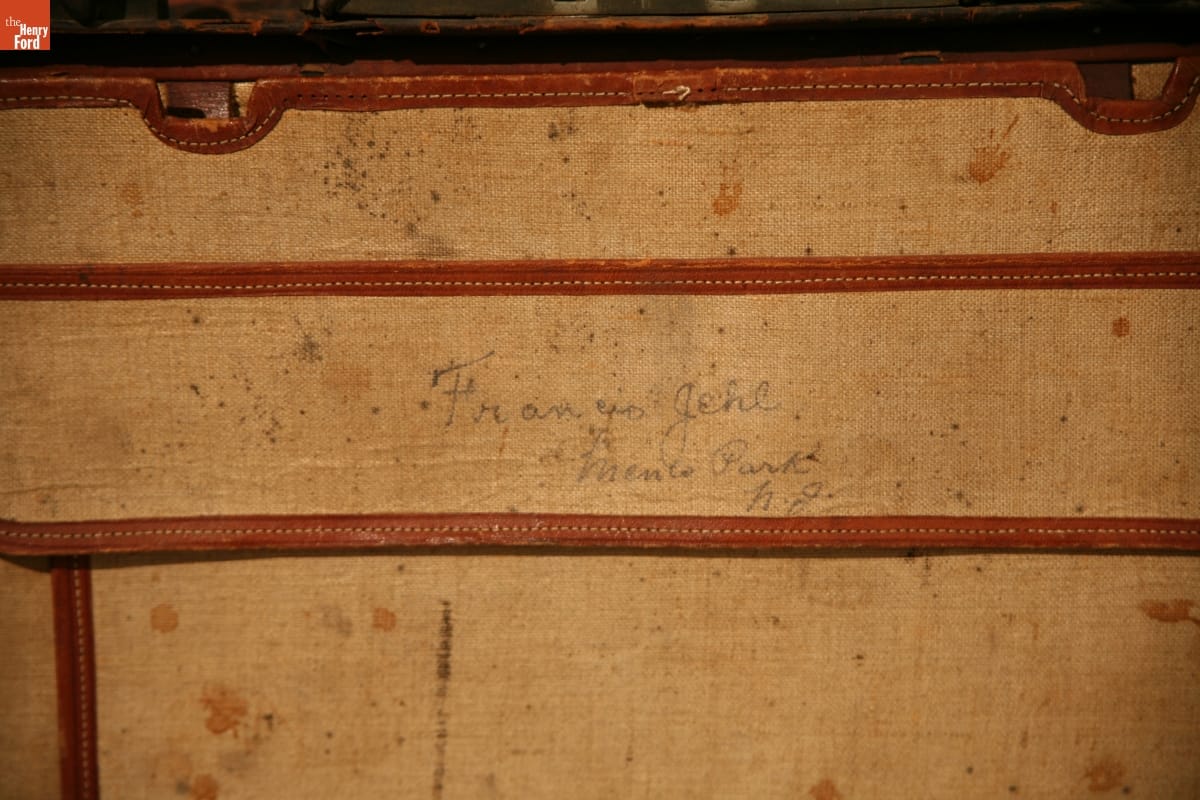 the
Henry
Ford
Francis Jehl
Menlo Park
N.J.